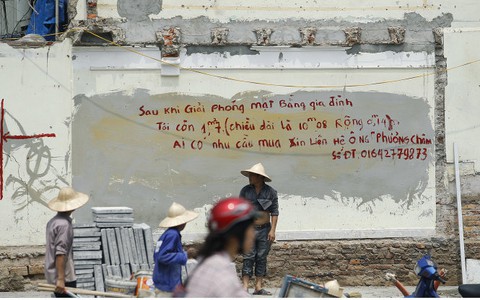 Sau khi Giải Phóng mặt Bằng gia đình
Tôi còn 1m²7, (chiều dài là 10m08 Rộng 0,14).
Ai có nhu cầu mua Xin Liên Hệ Ông Phường Chăm
Số ĐT: 01642779873